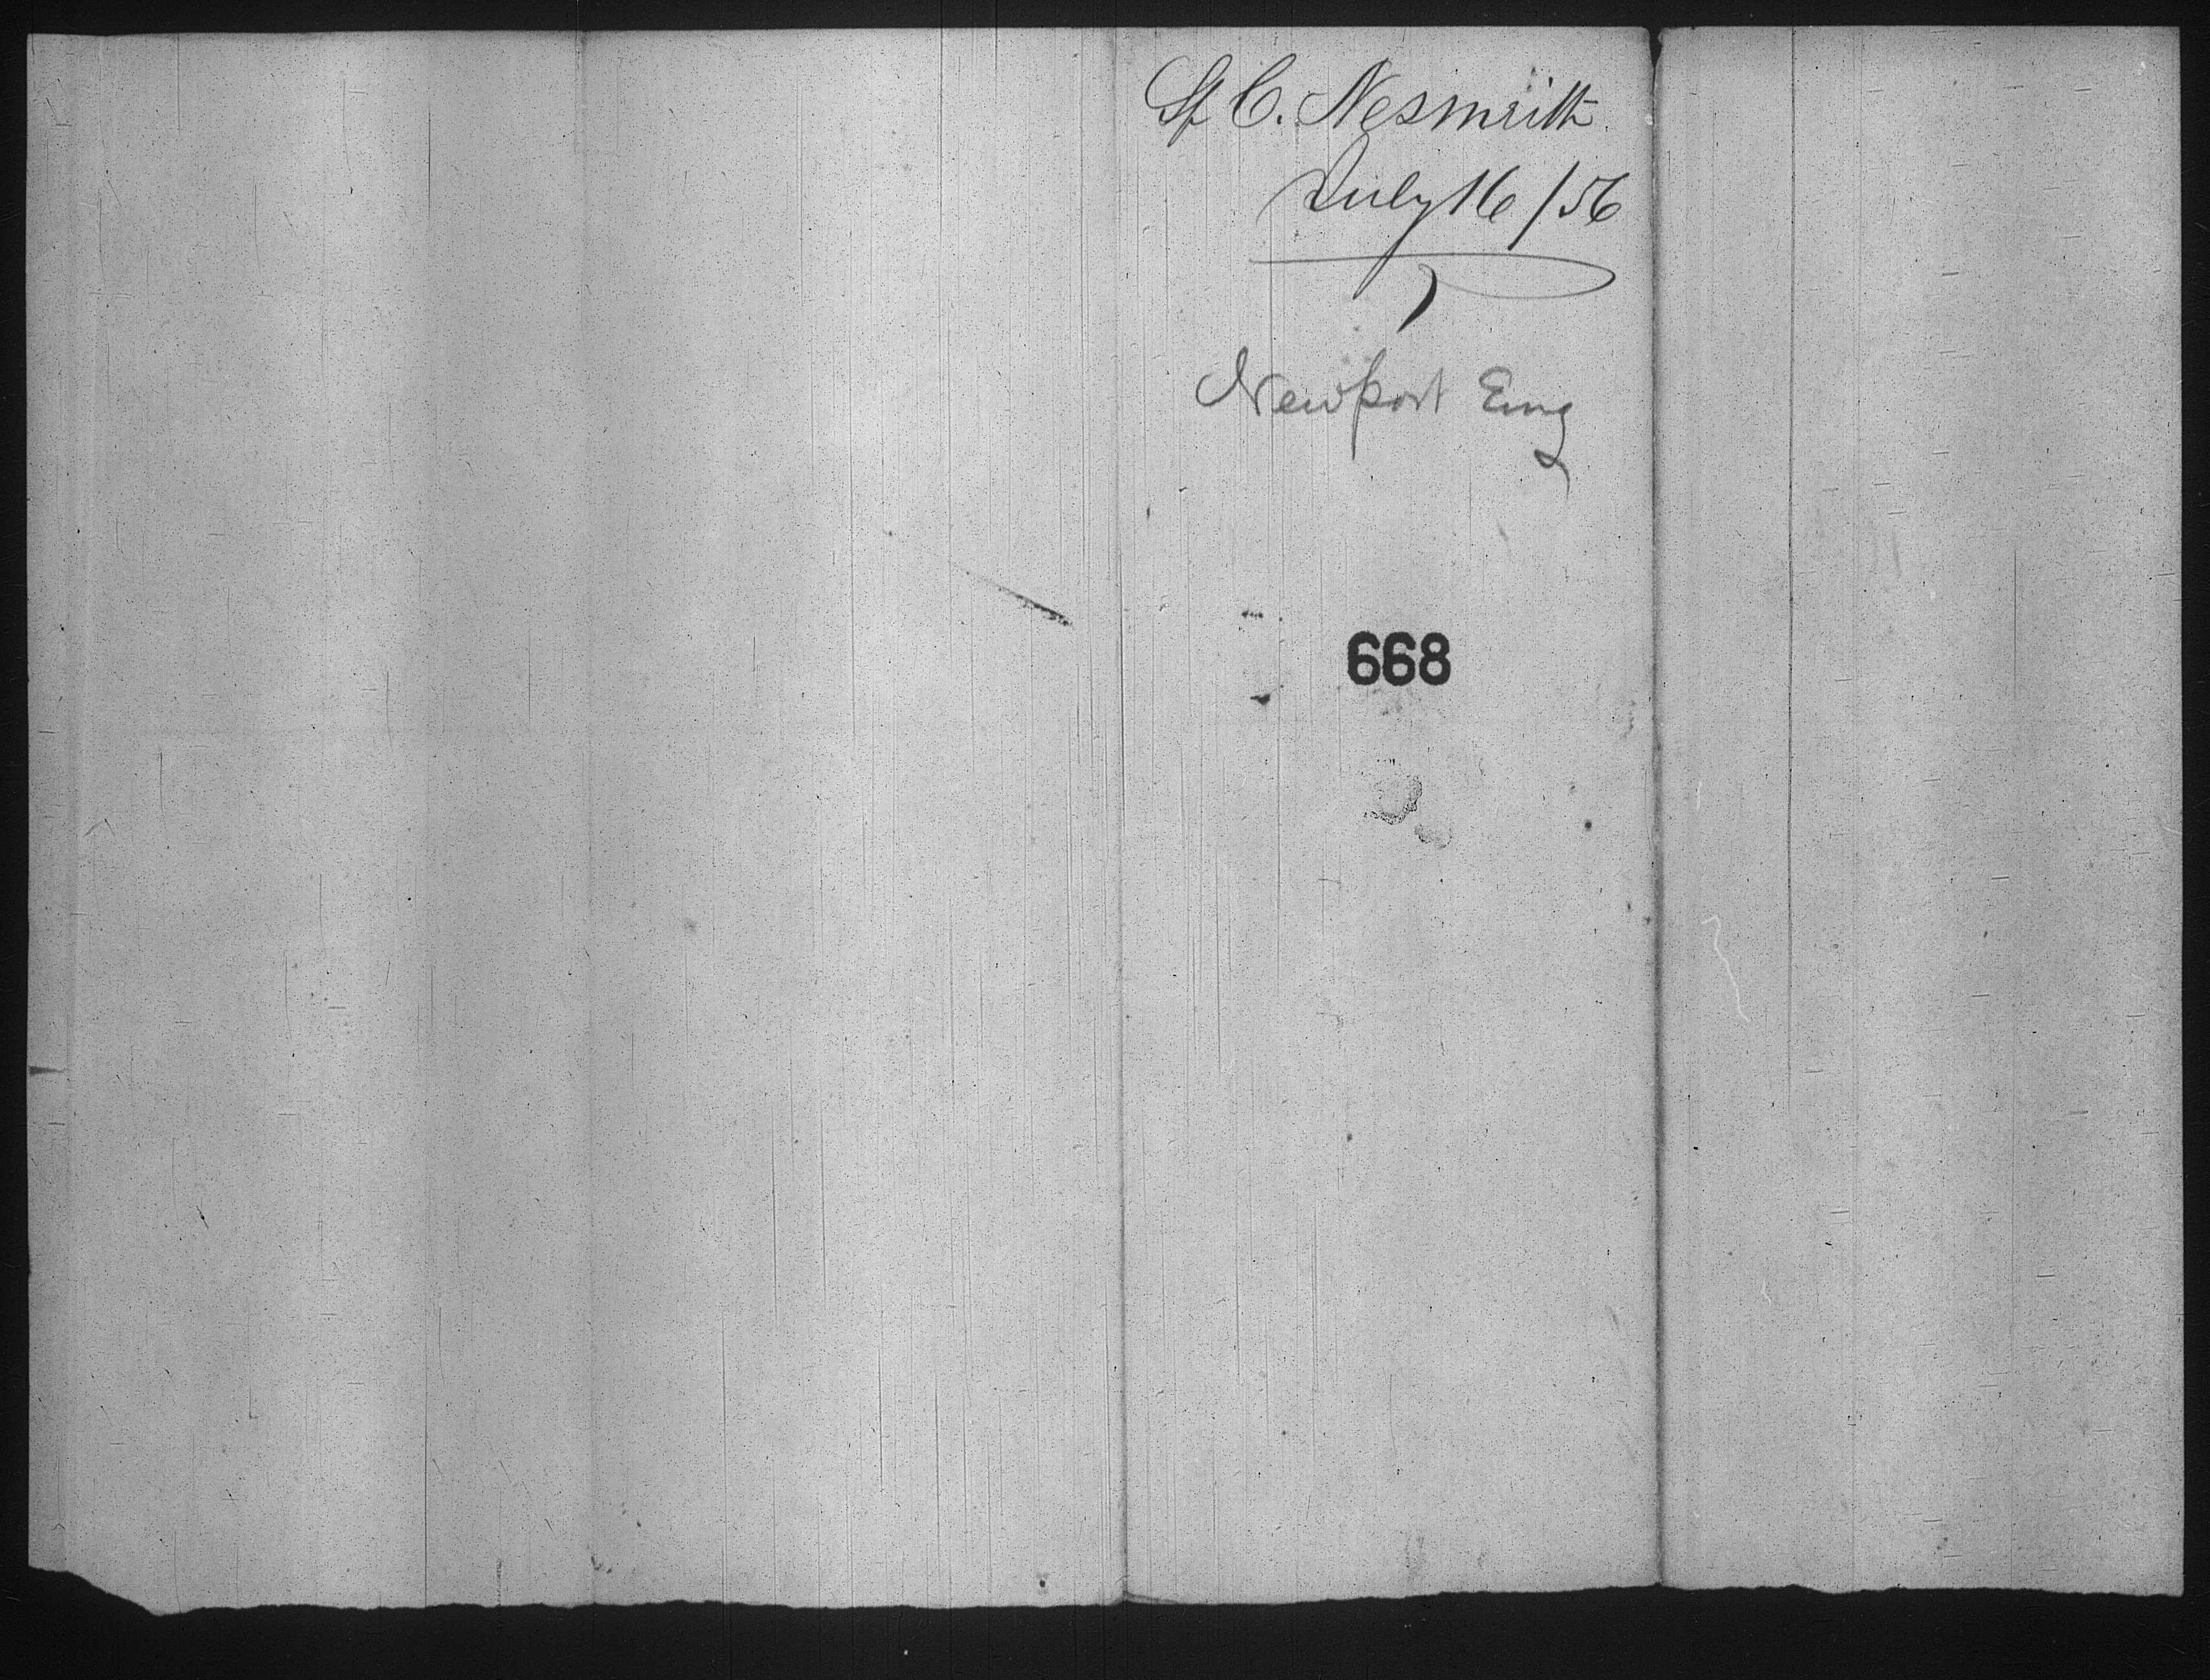 Sf C. Nesmith
July 16/56
Newport Eng
668